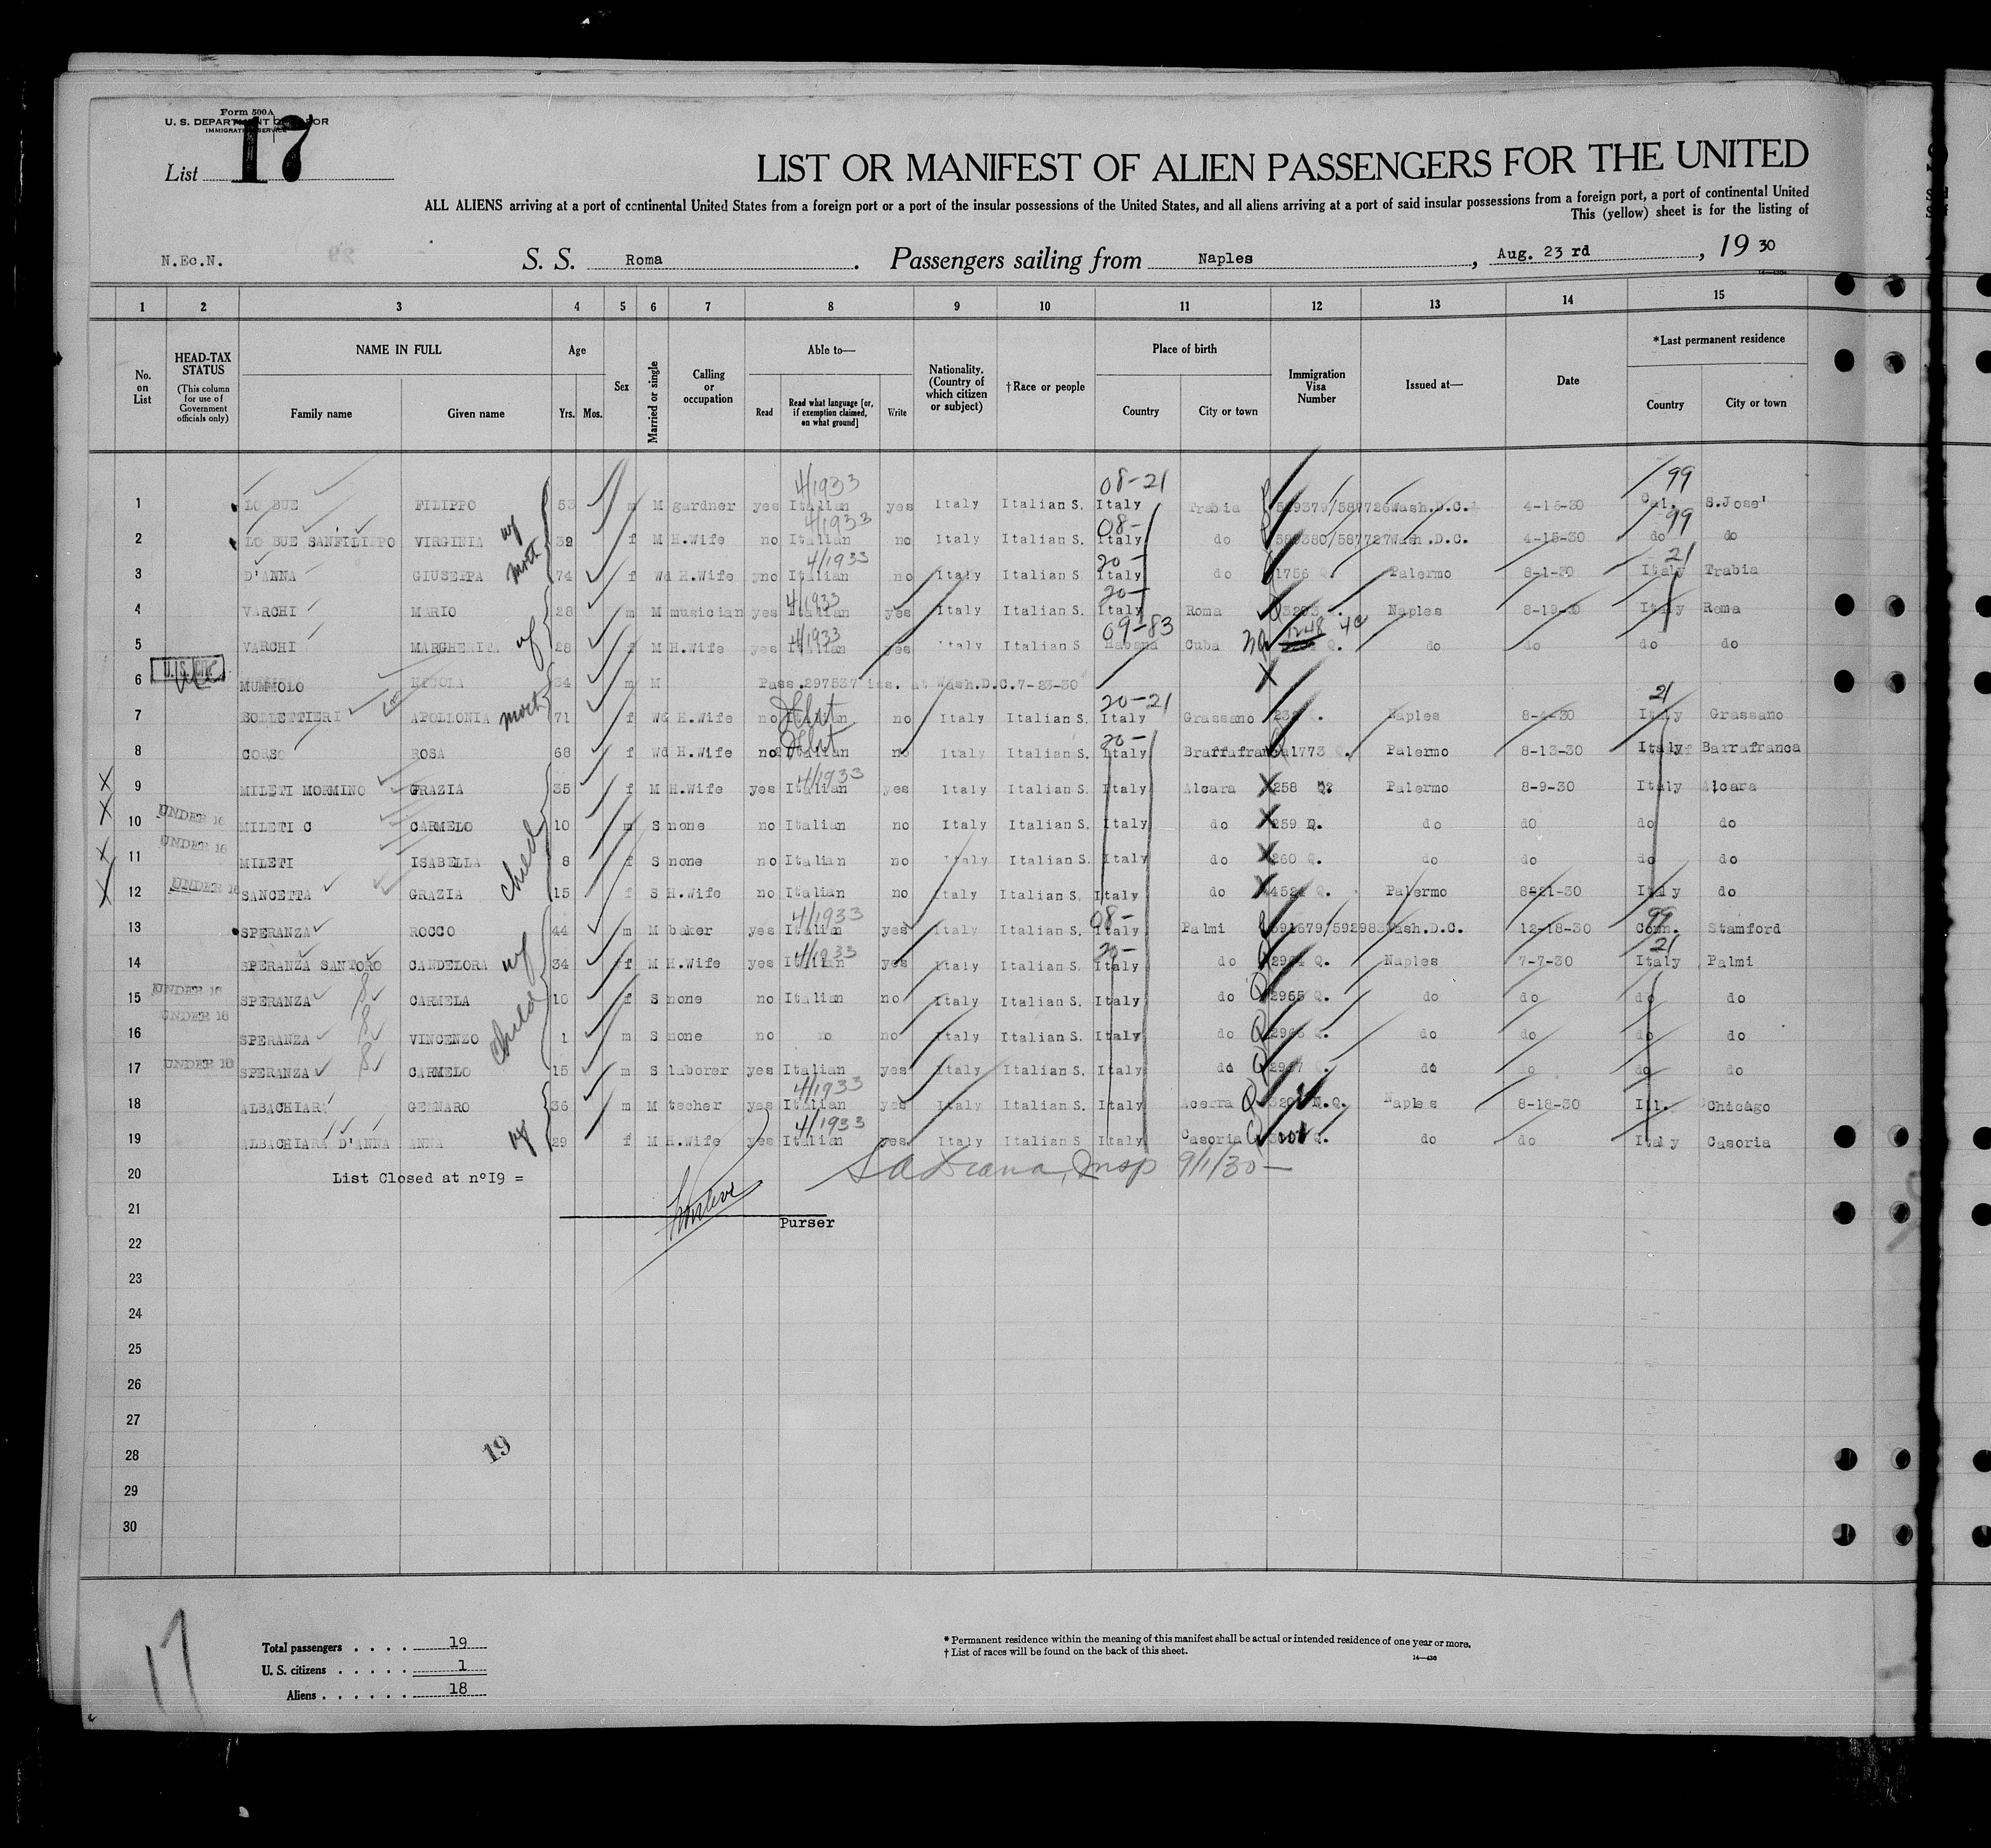 Form 500A
U. S. DEPARTMENT OF LABOR
IMMIGRATION SERVICE
List 17
LIST OR MANIFEST OF ALIEN PASSENGERS FOR THE UNITED
ALL ALIENS arriving at a port of continental United States from a foreign port or a port of the insular possessions of the United States, and all aliens arriving at a port of said insular possessions from a foreign port, a port of continental United
This (yellow) sheet is for the listing of
N.Ec.N. S. S. Roma. Passengers sailing from Naples, Aug. 23 rd, 19 30
1 2 3 4 5 6 7 8 9 10 11 12 13 14 15
No. on List
HEAD-TAX STATUS (This column for use of Government officials only)
NAME IN FULL Family name Given name
Age Yrs. Mos.
Sex
Married or single
Calling or occupation
Able to— Read Read what language [or, if exemption claimed, on what ground] Write
Nationality. (Country of which citizen or subject)
† Race or people
Place of birth Country City or town
Immigration Visa Number
Issued at—
Date
*Last permanent residence Country City or town
4/1933 08-21 99
1 LO BUE FILIPPO 53 m M gardner yes Italian yes Italy Italian S. Italy Trabia 589379/587726 Wash.D.C. 4-15-30 Cal. S.Jose'
wf 4/1933 08- 99
2 LO BUE SANFILIPPO VIRGINIA 39 f M H.Wife no Italian no Italy Italian S. Italy do 589380/587727 Wash.D.C. 4-15-30 do do
moth 4/1933 20- 21
3 D'ANNA GIUSEPPA 74 f Wd H.Wife no Italian no Italy Italian S Italy do 1756 Q. Palermo 8-1-30 Italy Trabia
4/1933 20-
4 VARCHI MARIO 28 m M musician yes Italian yes Italy Italian S. Italy Roma Naples 8-19-30 Italy Roma
wf 4/1933 09-83 1248
5 VARCHI MARGHERITA 28 f M H.Wife yes Italian yes Italy Italian S Habana Cuba Q. do do do do
U.S. CIT.
6 MUMMOLO NICOLA 34 m M Pass.297537 iss. at Wash.D.C.7-23-30
moth 20-21 21
7 BOLLETTIERI APOLLONIA 71 f Wd H.Wife no Italian no Italy Italian S. Italy Grassano Naples 8-4-30 Italy Grassano
20-
8 CORSO ROSA 68 f Wd H.Wife no Italian no Italy Italian S. Italy Braffafranca 1773 Q. Palermo 8-13-30 Italy Barrafranca
4/1933
9 MILETI MORMINO GRAZIA 35 f M H.Wife yes Italian yes Italy Italian S. Italy Alcara 258 Palermo 8-9-30 Italy Alcara
UNDER 16
10 MILETI C CARMELO 10 m S none no Italian no Italy Italian S. Italy do 259 Q. do do do do
UNDER 16
11 MILETI ISABELLA 8 f S none no Italian no Italy Italian S. Italy do 260 Q. do do do do
UNDER 16
12 SANCETTA GRAZIA 15 f S H.Wife no Italian no Italy Italian S. Italy do Q. Palermo 8-21-30 Italy do
4/1933 08- 99
13 SPERANZA ROCCO 44 m M baker yes Italian yes Italy Italian S. Italy Palmi 591679/592983 Wash.D.C. 12-18-30 Conn. Stamford
wf 4/1933 20- 21
14 SPERANZA SANTORO CANDELORA 34 f M H.Wife yes Italian yes Italy Italian S. Italy do 2964 Q. Naples 7-7-30 Italy Palmi
UNDER 16
15 SPERANZA CARMELA 10 f S none no Italian no Italy Italian S. Italy do 2965 Q. do do do do
UNDER 16
16 SPERANZA VINCENZO 1 m S none no no no Italy Italian S. Italy do 2966 Q. do do do do
UNDER 16
17 SPERANZA CARMELO 15 m S laborer yes Italian yes Italy Italian S. Italy do 2967 Q. do do do do
4/1933
18 ALBACHIARA GENNARO 36 m M techer yes Italian yes Italy Italian S. Italy Acerra N.Q. Naples 8-18-30 Ill. Chicago
wf 4/1933
19 ALBACHIARA D'ANNA ANNA 29 f M H.Wife yes Italian yes Italy Italian S. Italy Casoria Q. do do Italy Casoria
20 List Closed at n°I9 = Insp 9/1/30-
21 Purser
22
23
24
25
26
27
28 19
29
30
17
Total passengers . . . . 19
U. S. citizens . . . . . 1
Aliens . . . . . . 18
* Permanent residence within the meaning of this manifest shall be actual or intended residence of one year or more.
† List of races will be found on the back of this sheet.
14—430